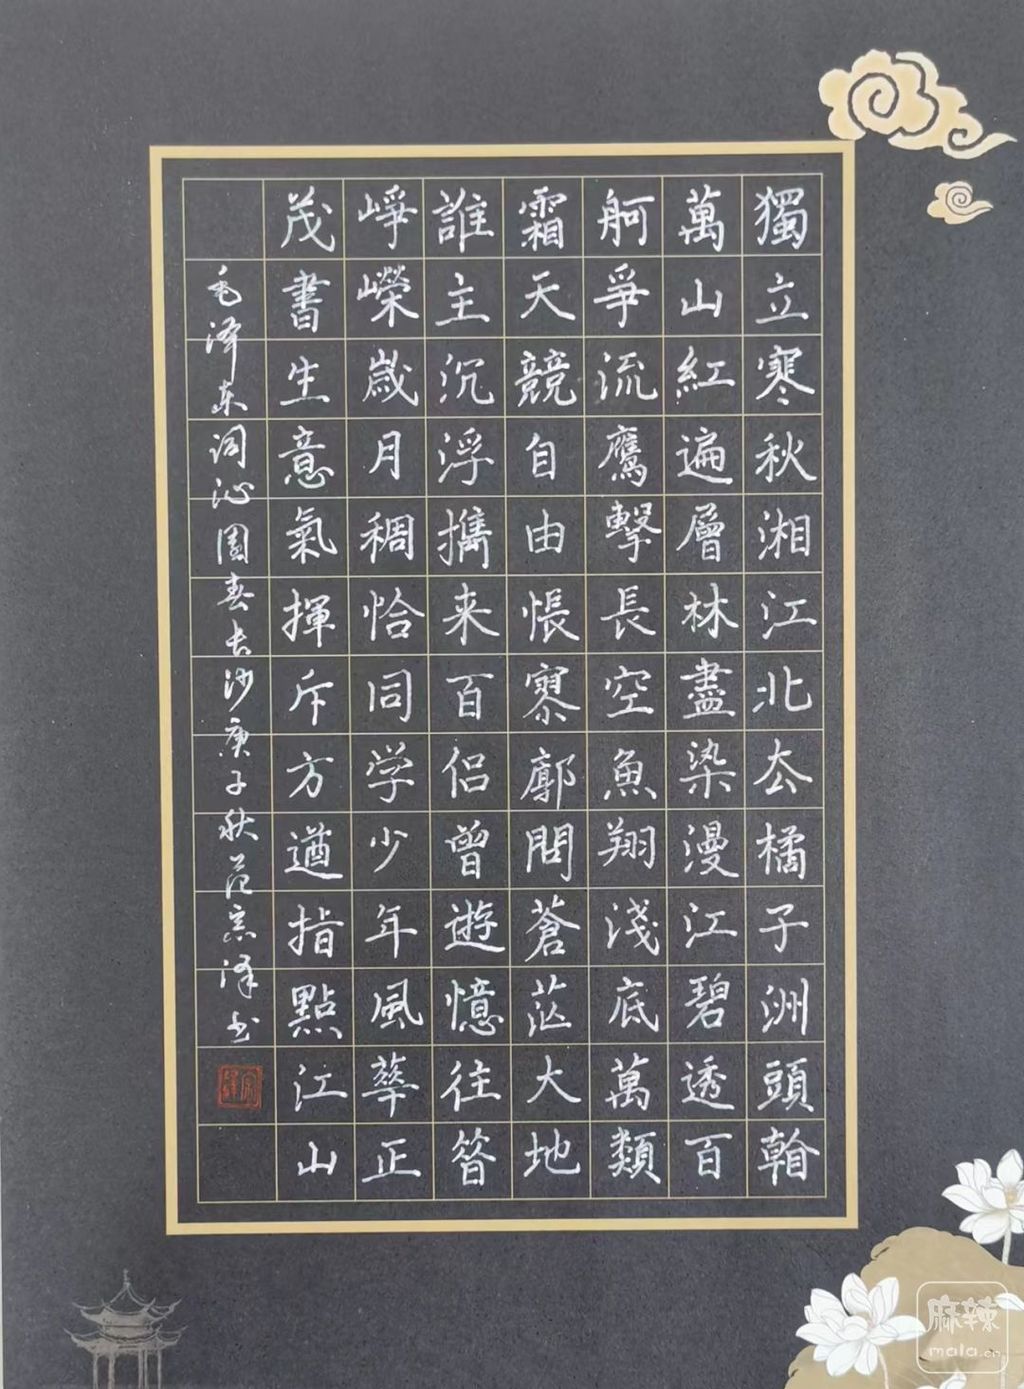 獨立寒秋湘江北厺橘子洲頭榦
萬山紅遍層林盡染漫江碧透百
舸爭流鷹擊長空魚翔淺底萬類
霜天競自由悵寥廓問蒼茫大地
誰主沉浮攜来百侣曾遊憶往昝
崢嶸歲月稠恰同学少年風華正
茂書生意氣揮斥方遒指點江山
毛泽东词沁園春长沙庚子秋范宗泽书
麻辣
mala.cn